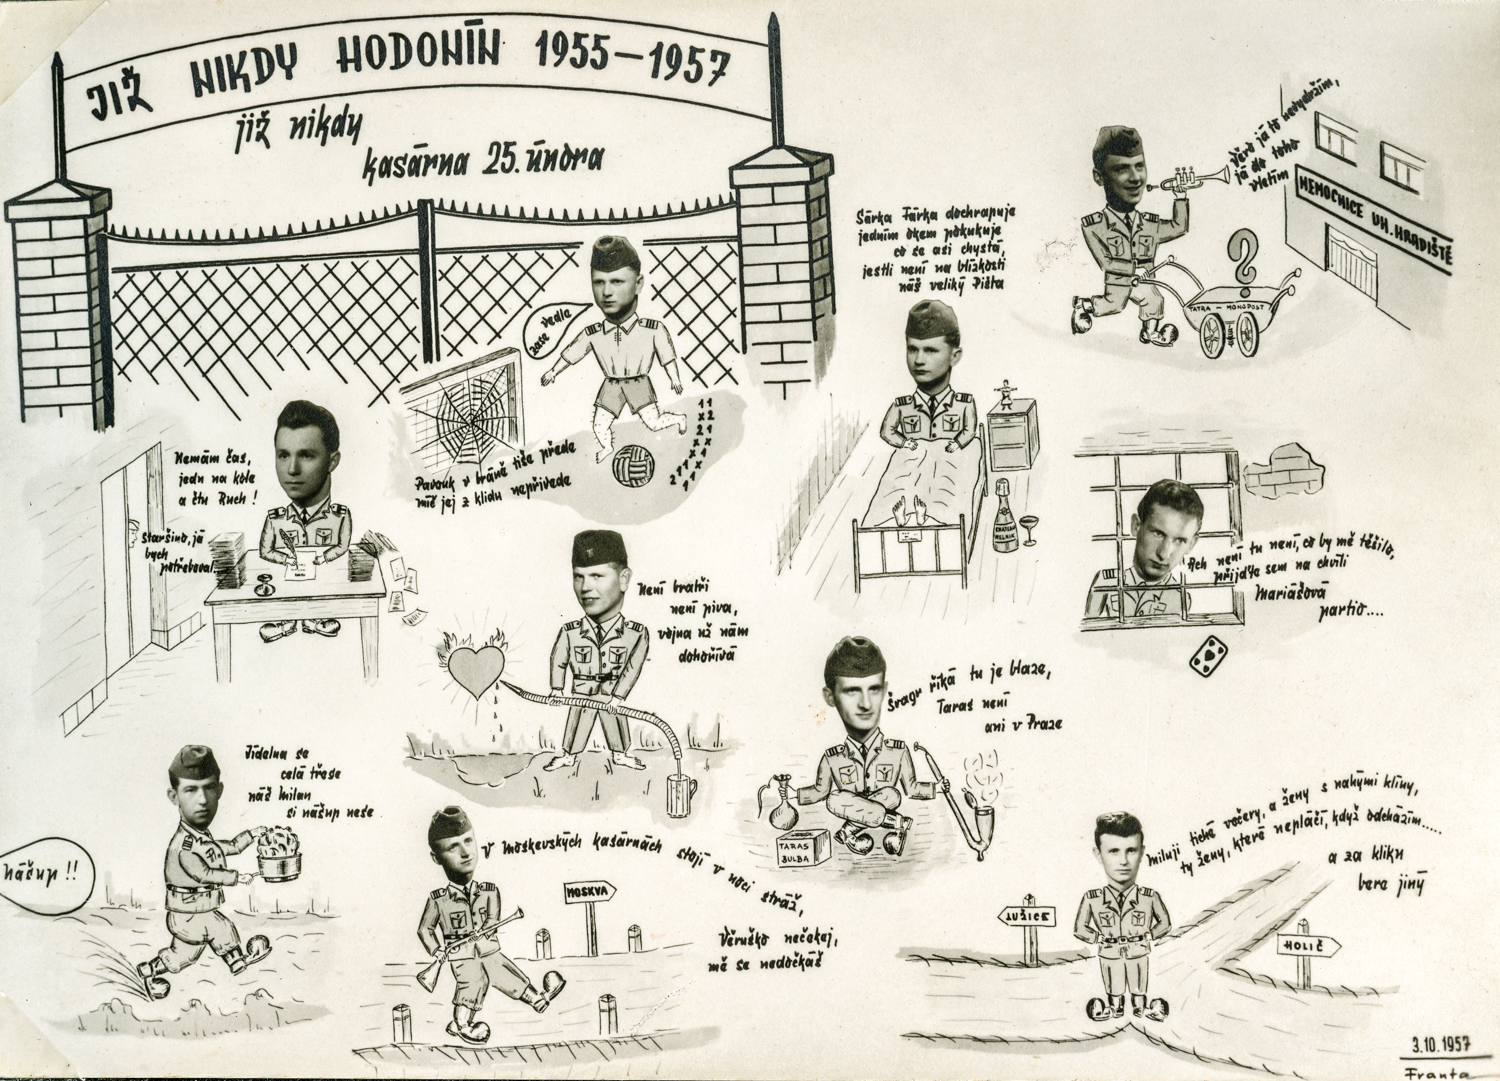 JIŽ NIKDY HODONÍN 1955–1957
již nikdy
kasárna 25. února
zase vedle
Pavouk v bráně tiše přede
míč jej z klidu nepřivede
11
x2
x
2x
x1
2x
11
Šárka Fárka dochrapuje
jedním okem pokukuje
co se asi chystá,
jestli není na blízkosti
náš veliký Pišta
CHATEAU
MĚLNÍK
Věro já to nevydržím,
já do toho
vletím
NEMOCNICE UH. HRADIŠTĚ
?
TATRA – MONOPOST
Nemám čas,
jedu na kole
a čtu Ruch!
staršino, já
bych
potřeboval
Není bratři
není piva,
vojna už nám
dohořívá
Ach není tu není, co by mě těšilo,
přijďte sem na chvíli
Mariášová
partio....
Švagr říká tu je blaze,
Taras není
ani v Praze
TARAS
BULBA
Jídelna se
celá třese
náš Milan
si nášup nese
nášup!!
V Moskevských kasárnách stojí v noci stráž,
Věruško nečekej,
mě se nedočkáš
MOSKVA
Miluji tiché večery, a ženy s nahými klíny,
ty ženy, které nepláčí, když odcházím.....
a za kliku
bere jiný
LUŽICE
HOLIČ
3.10.1957
Franta